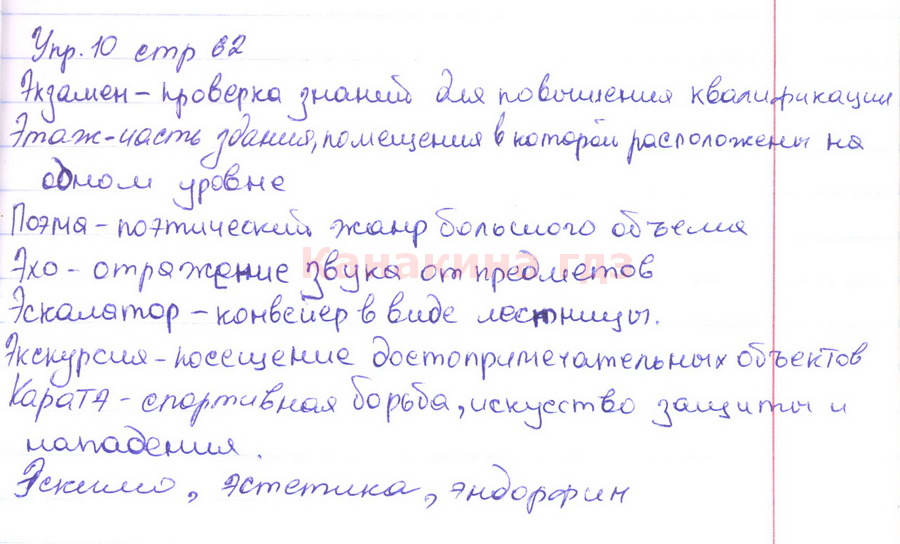 Упр. 10 стр 62
Экзамен - проверка знаний для повышения квалификации
Этаж - часть здания, помещения в которой расположены на
одном уровне
Поэма - поэтический жанр большого объема
Эхо - отражение звука от предметов
Эскалатор - конвейер в виде лестницы.
Экскурсия - посещение достопримечательных объектов
Каратэ - спортивная борьба, искусство защиты и
нападения.
Эскимо, эстетика, эндорфин
Канакина.гдз